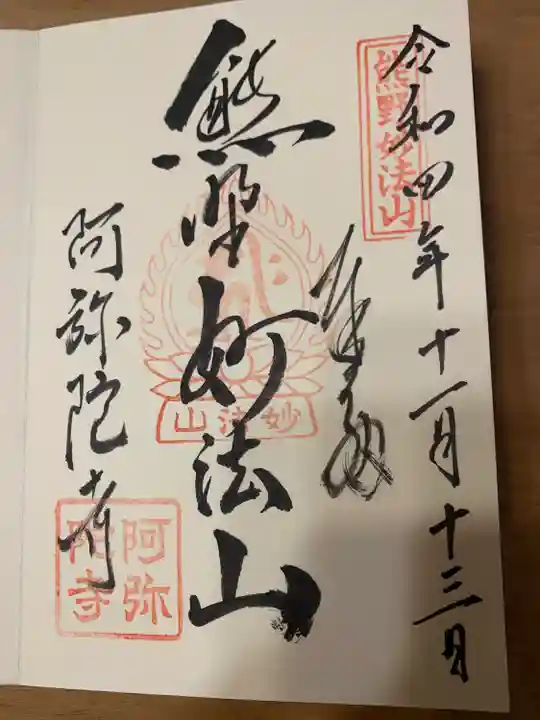 令和四年十一月十三日
熊野妙法山
奉拝
熊野妙法山
妙法山
阿弥陀寺
阿弥陀寺